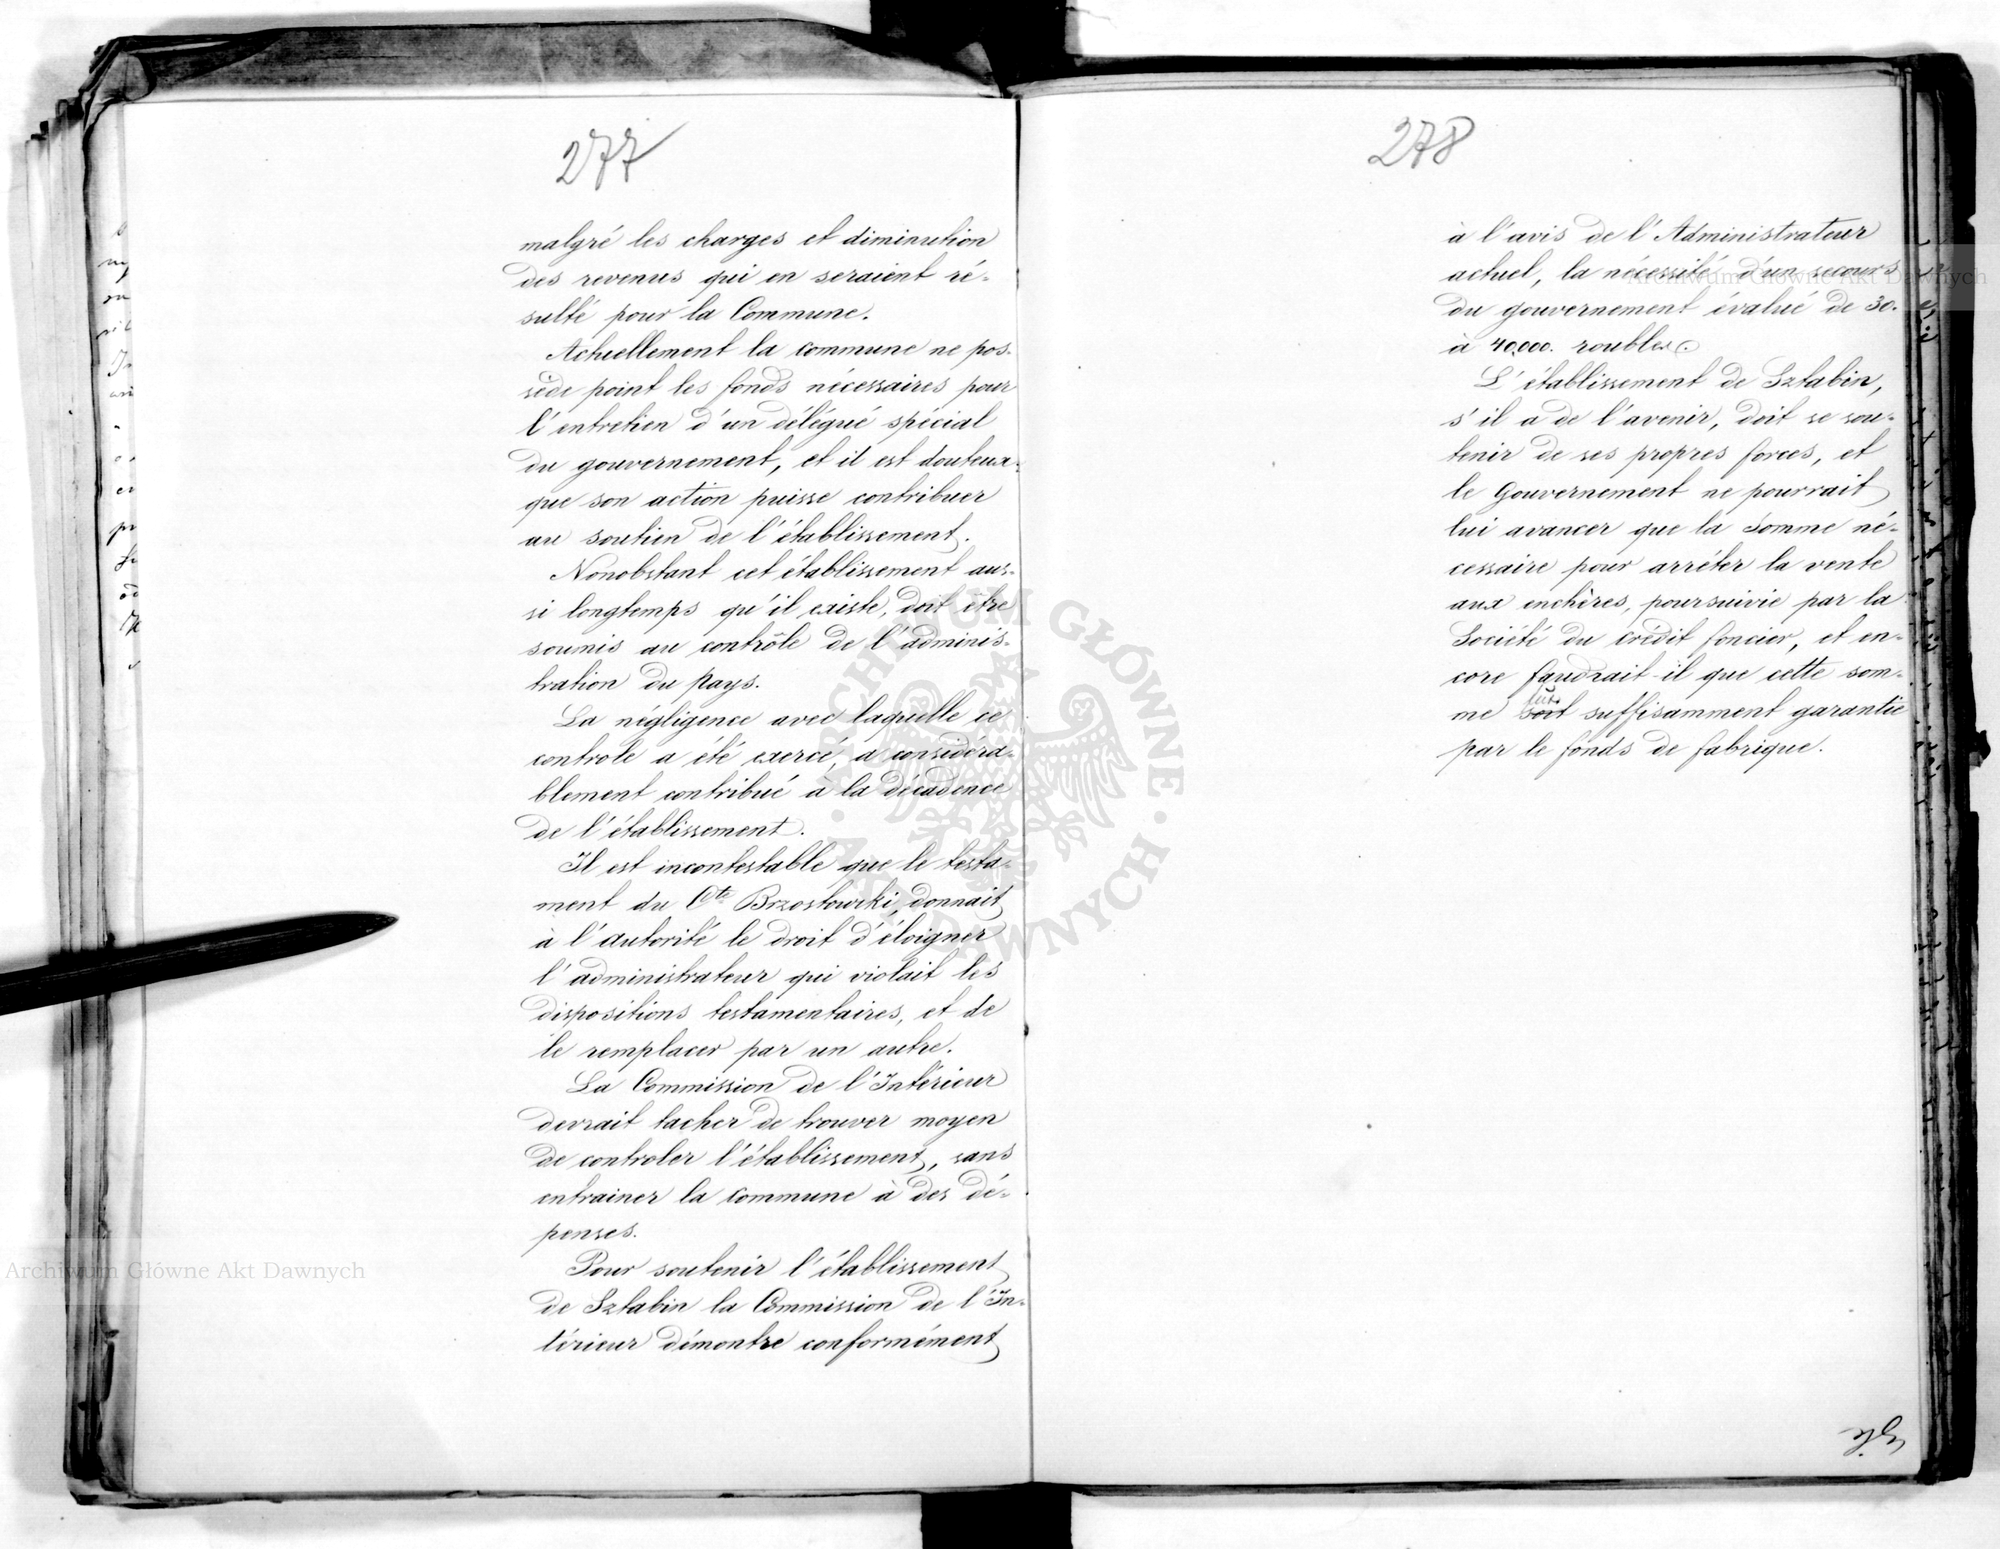 277
malgré les charges et diminution
des revenus qui en seraient ré-
sulté pour la Commune.
Actuellement la commune ne pos-
sède point les fonds nécessaires pour
l'entretien d'un délégué spécial
du gouvernement, et il est douteux
que son action puisse contribuer
au soutien de l'établissement.
Nonobstant cet établissement aus-
si longtemps qu'il existe, doit être
soumis au contrôle de l'adminis-
tration du pays.
La négligence avec laquelle ce
controle a été exercé, a considéra-
blement contribué à la décadence
de l'établissement.
Il est incontestable que le testa-
ment du Cte Brzostowski, donnait
à l'autorité le droit d'éloigner
l'administrateur qui violait les
dispositions testamentaires, et de
le remplacer par un autre.
La Commission de l'Intérieur
devrait tacher de trouver moyen
de controler l'établissement, sans
entrainer la commune à des dé-
penses.
Pour soutenir l'établissement
de Sztabin la Commission de l'In-
térieur démontre conformément
278
à l'avis de l'Administrateur
actuel, la nécessité d'un secours
du gouvernement évalué de 30.
à 40,000. roubles.
L'établissement de Sztabin,
s'il a de l'avenir, doit se sou-
tenir de ses propres forces, et
le Gouvernement ne pourrait
lui avancer que la somme né-
cessaire pour arrêter la vente
aux enchères, poursuivie par la
Société du crédit foncier, et en-
core faudrait-il que cette som-
me soit fût suffisamment garantie
par le fonds de fabrique.
Archiwum Główne Akt Dawnych
Archiwum Główne Akt Dawnych
ARCHIWUM GŁÓWNE AKT DAWNYCH